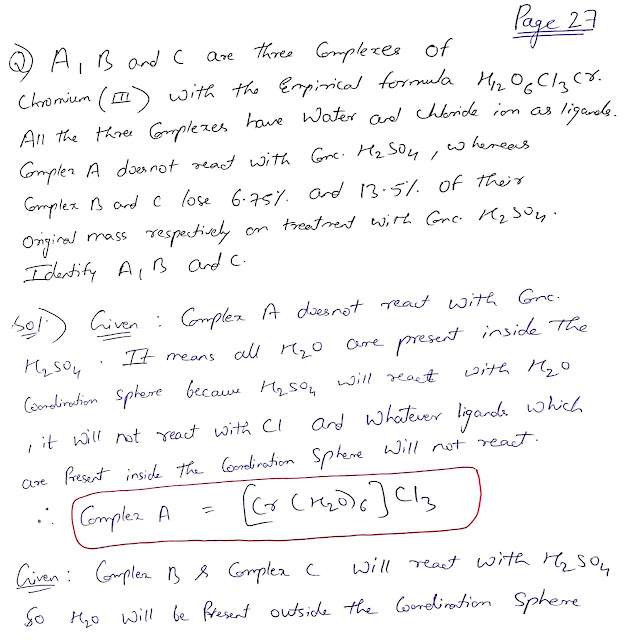 Page 27
Q) A, B and C are three Complexes of
Chromium (III) with the Empirical formula H12O6Cl3Cr.
All the three Complexes have Water and chloride ion as ligands.
Complex A doesnot react with Conc. H2SO4, whereas
Complex B and C lose 6.75%. and 13.5%. of their
Original mass respectively on treatment with Conc. H2SO4.
Identify A, B and C.
Sol.) Given : Complex A doesnot react with Conc.
H2SO4. It means all H2O are present inside The
Coordination sphere because H2SO4 will react with H2O
, it will not react with Cl and whatever ligands which
are Present inside the Coordination Sphere will not react.
∴ Complex A = [Cr (H2O)6] Cl3
Given : Complex B & Complex C will react with H2SO4
So H2O will be Present outside the Coordination Sphere